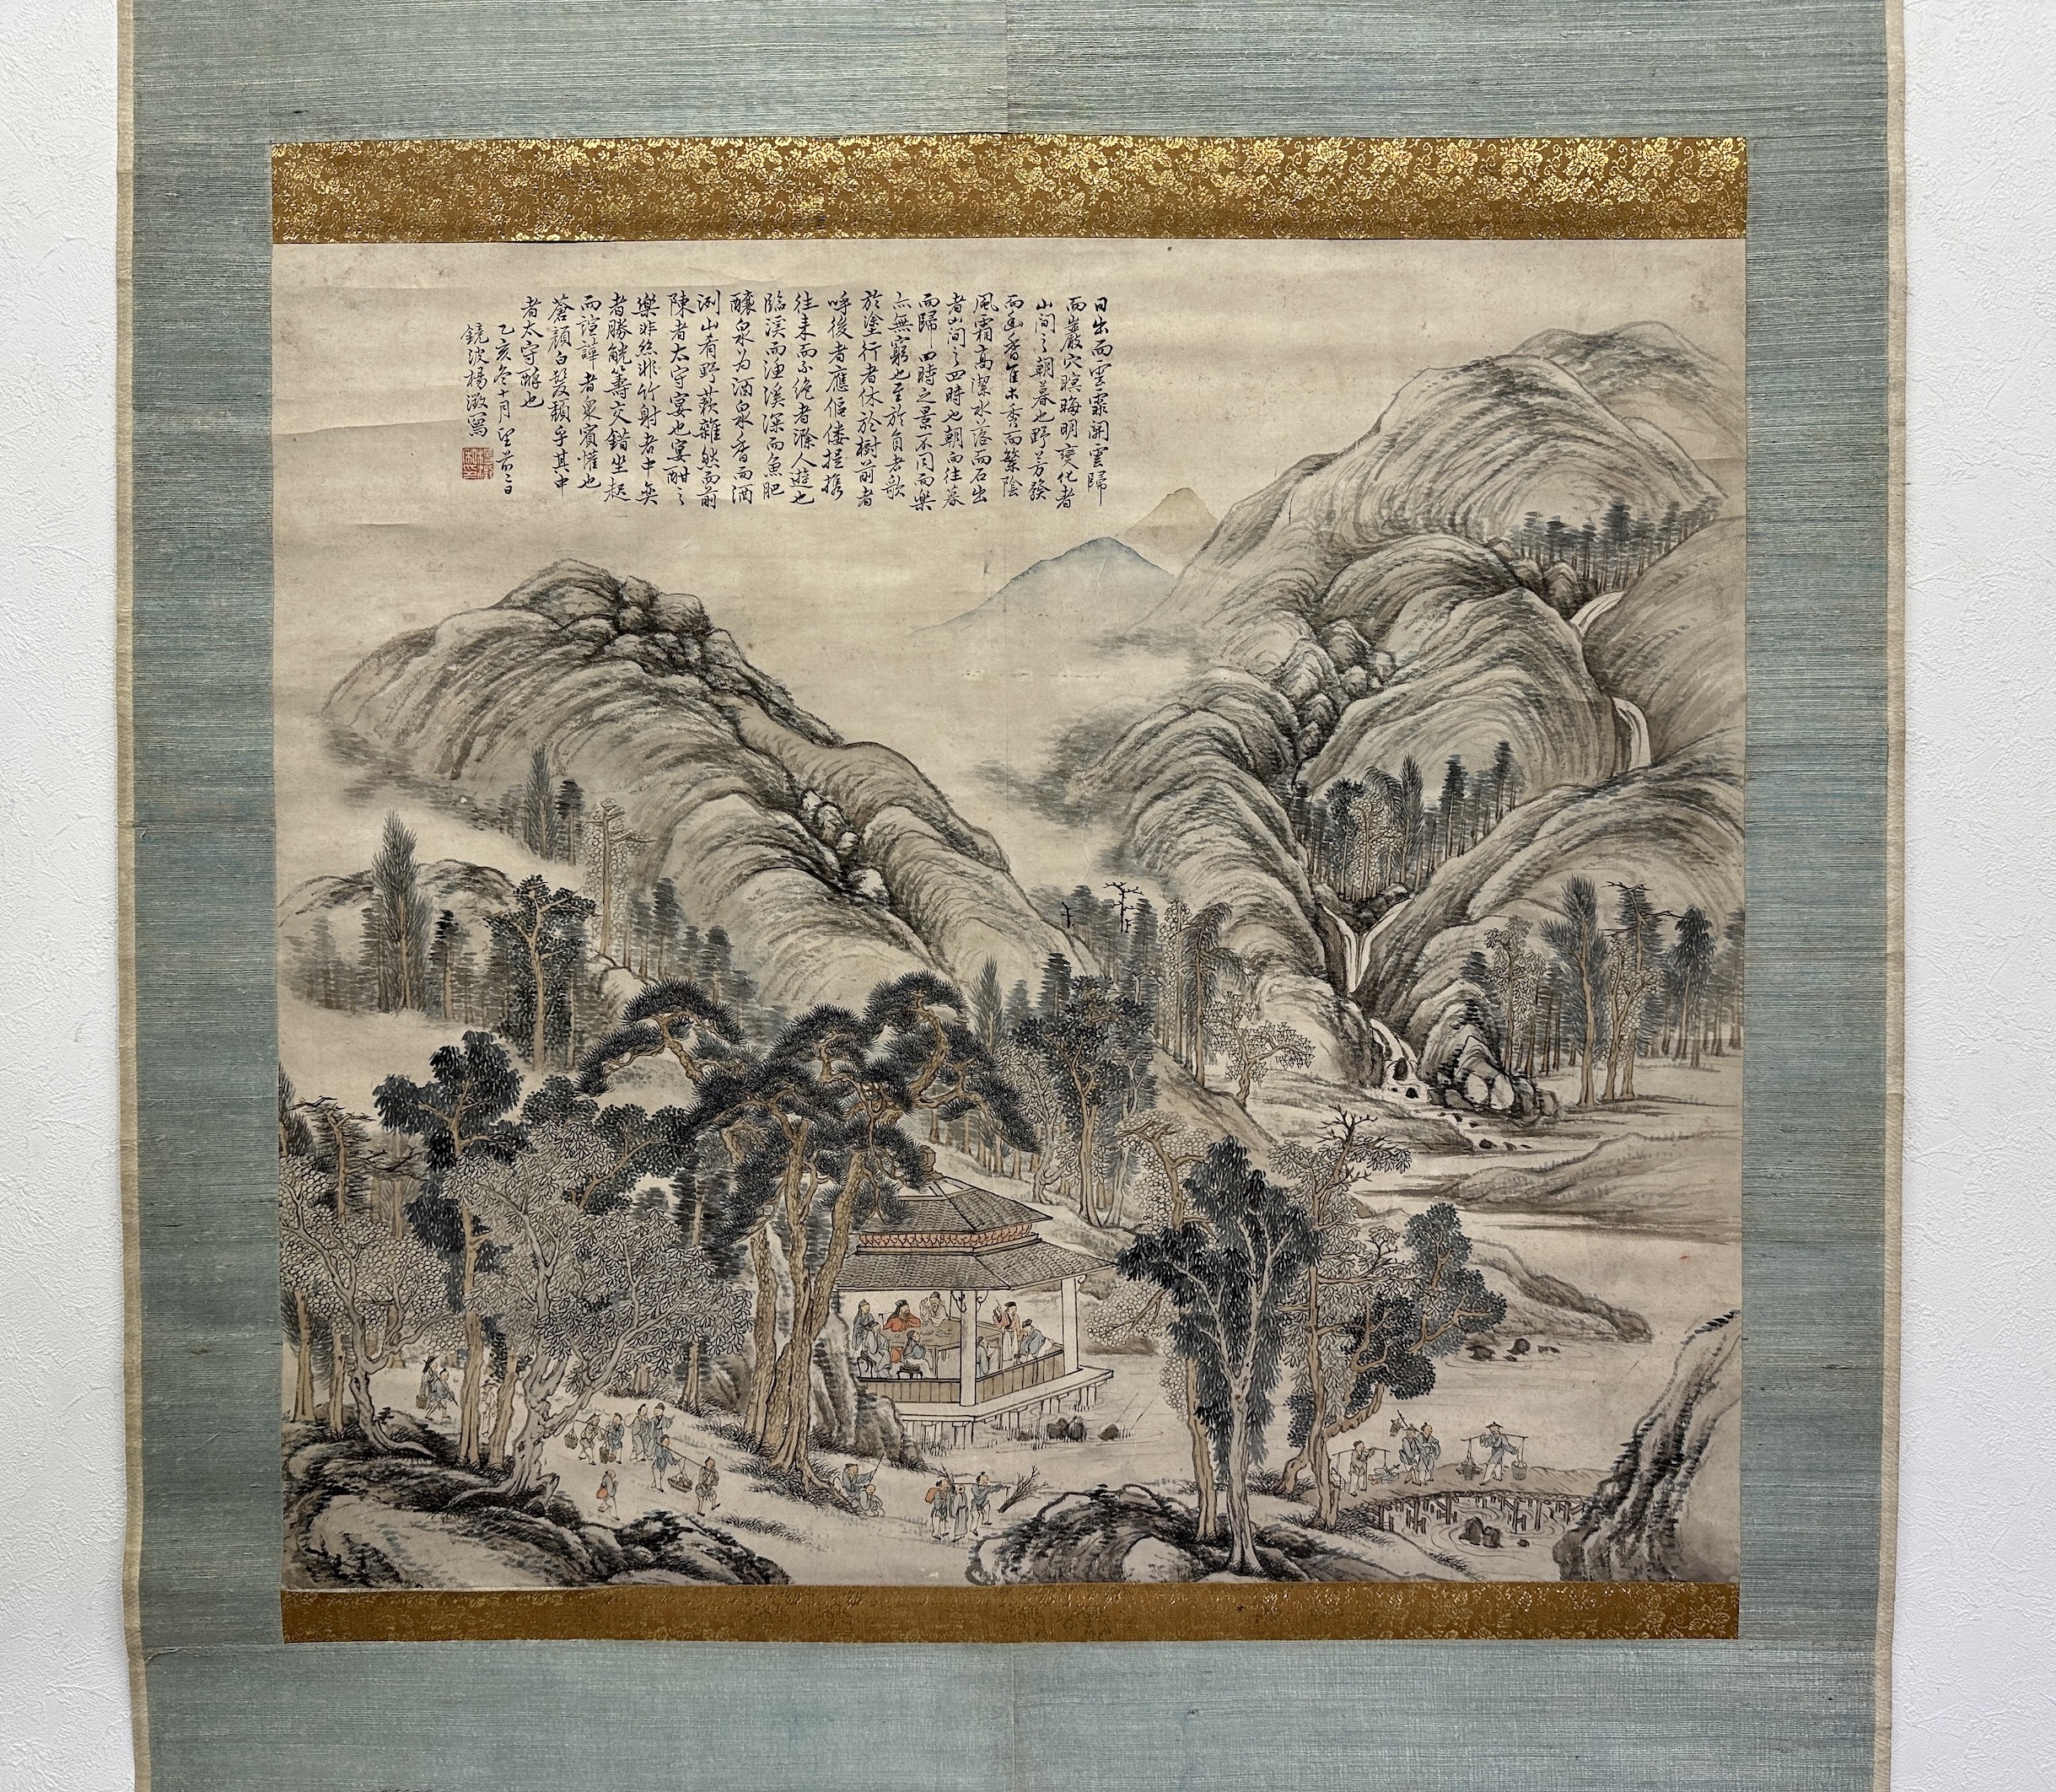 日出而雲霏開雲歸
而巖穴暝晦明變化者
山間之朝暮也野芳發
而幽香佳木秀而繁陰
風霜高潔水落而石出
者山間之四時也朝而往暮
而歸四時之景不同而樂
亦無窮也至於負者歌
於塗行者休於樹前者
呼後者應傴僂提携
往来而不絶者滁人遊也
臨溪而漁溪深而魚肥
釀泉為酒泉香而酒
洌山肴野蔌雜然而前
陳者太守宴也宴酣之
樂非絲非竹射者中奕
者勝觥籌交錯坐起
而諠譁者衆賓懽也
蒼顔白髮頽乎其中
者太守醉也
乙亥冬十月望前二日
鏡波楊澂寫